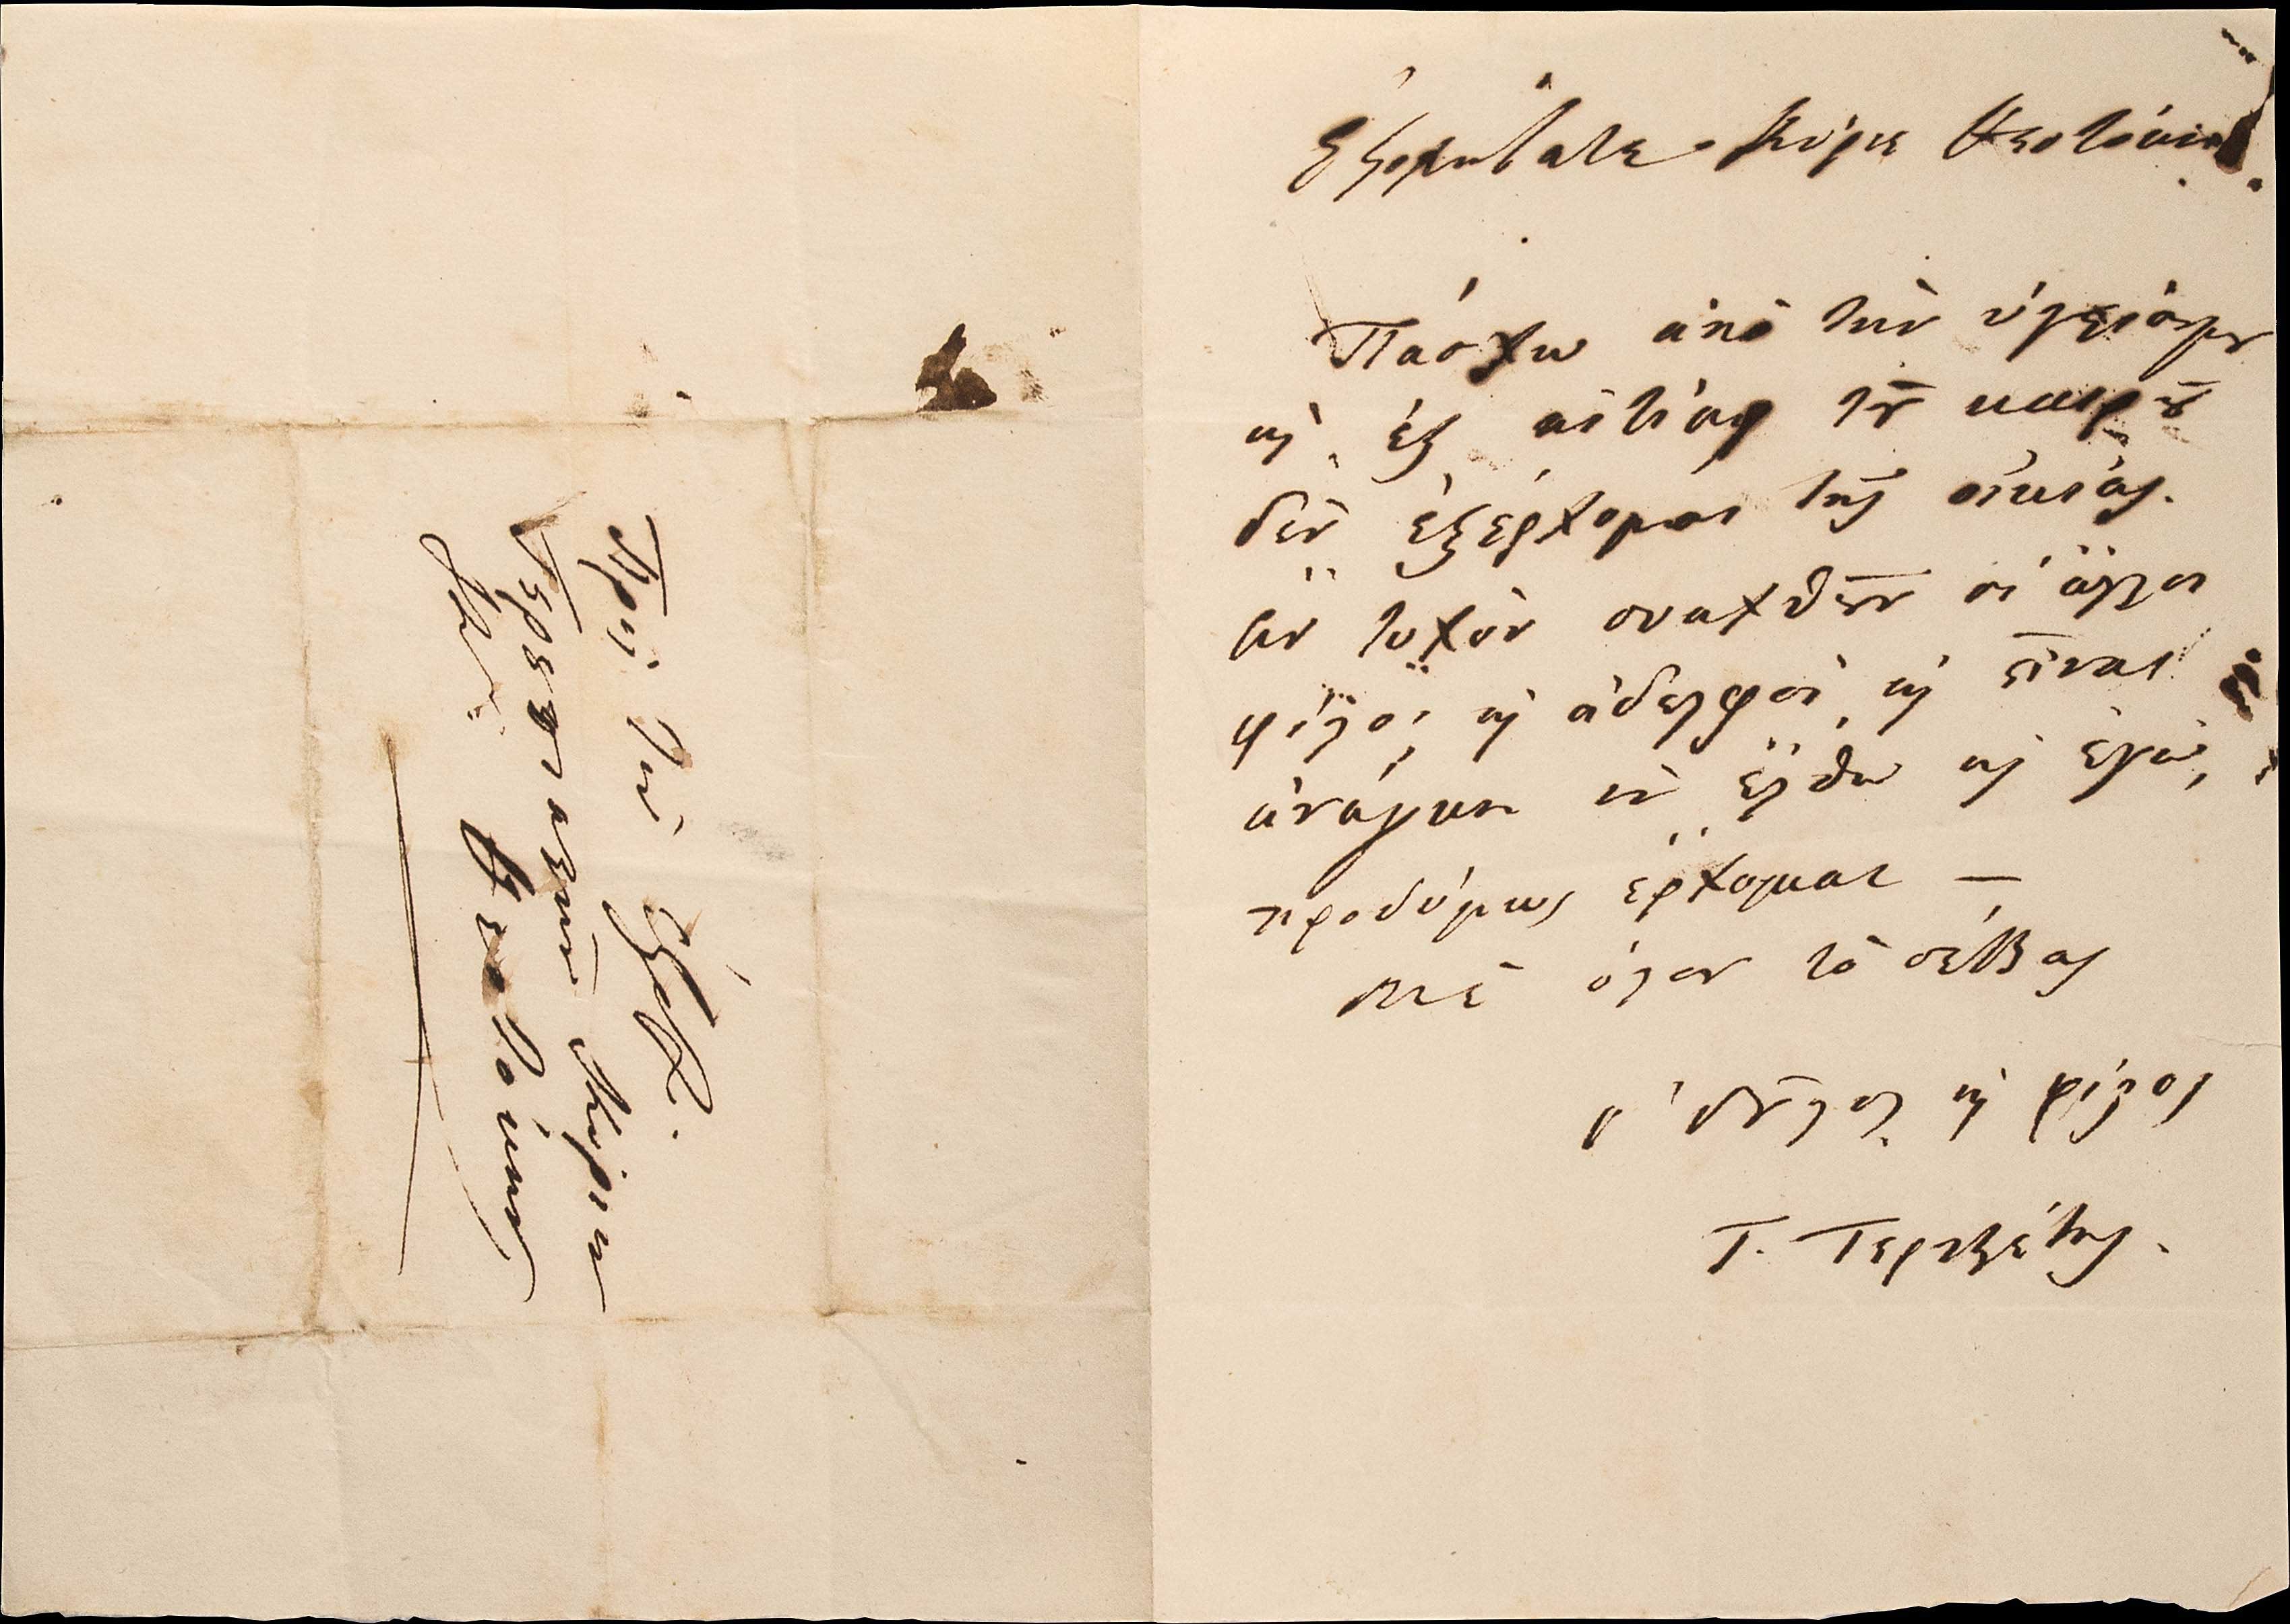 Ἐξοχώτατε Κύριε Θεοτόκη.
Πάσχω ἀπὸ τὴν ὑγείαμου
καὶ ἐξ αἰτίας τοῦ καιροῦ
δὲν ἐξέρχομαι τῆς οἰκίας.
ἂν τυχὸν συναχθοῦν οἱ ἄλλοι
φίλοι καὶ ἀδελφοὶ, καὶ εἶναι
ἀνάγκη νὰ ἔλθω καὶ ἐγώ,
προθύμως ἔρχομαι —
Μὲ ὅλον τὸ σέβας
ὁ δοῦλος καὶ φίλος
Γ. Τερτζέτης.
Πρὸς τὸν Ἐξοχ.
Γερουσιαστὴν Κύριον
Θεοτόκην